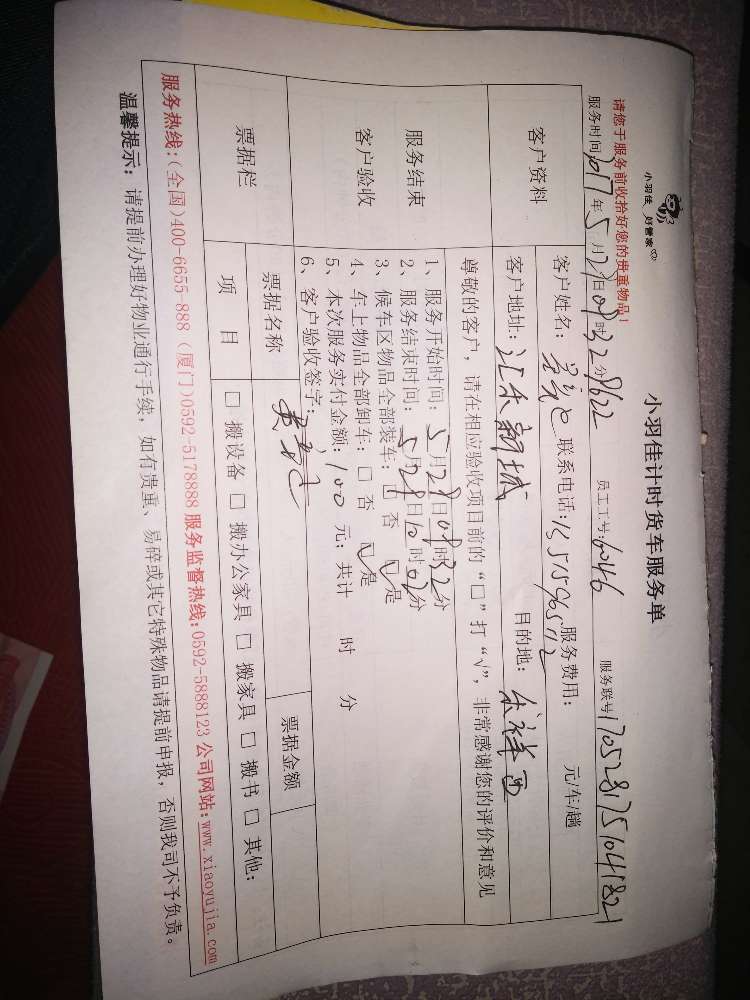 小羽佳 好管家
小羽佳计时货车服务单
请您于服务前收拾好您的贵重物品!
服务时间 2017年5月28日08时32分 8622 员工工号:6046 服务联号 17052817510418221
客户资料
客户姓名: 联系电话:13515965112 服务费用: 元/车/趟
客户地址: 汇禾新城 目的地: 禾祥西
服务结束
客户验收
尊敬的客户, 请在相应验收项目前的“□”打“√”, 非常感谢您的评价和意见
1、服务开始时间: 5月28日08时32分
2、服务结束时间: 5月28日10时08分
3、候车区物品全部装车: □否 ☑是
4、车上物品全部卸车: □否 ☑是
5、本次服务实付金额: 100 元; 共计 时 分
6、客户验收签字:
票据栏
票据名称 票据金额
项 目 □搬设备 □搬办公家具 □搬家具 □搬书 □其他:
服务热线:(全国)400-6655-888 (厦门)0592-5178888 服务监督热线:0592-5888123 公司网站:www.xiaoyujia.com
温馨提示: 请提前办理好物业通行手续, 如有贵重、易碎或其它特殊物品请提前申报, 否则我司不予负责。